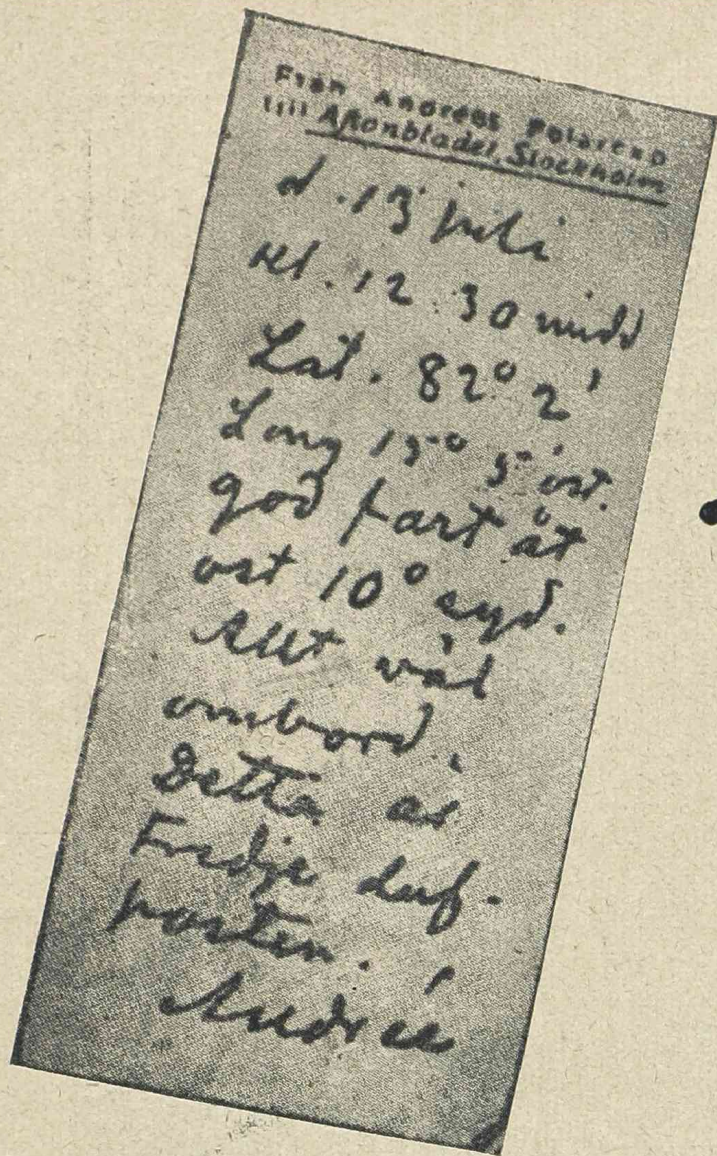 Från Andrées Polarexp.
till Aftonbladet, Stockholm
d. 13 juli
kl. 12.30 midd
Lat. 82° 2'
Long 15° 5' ost.
god fart åt
ost 10° syd.
Allt väl
ombord.
Detta är
tredje duf-
posten.
Andrée